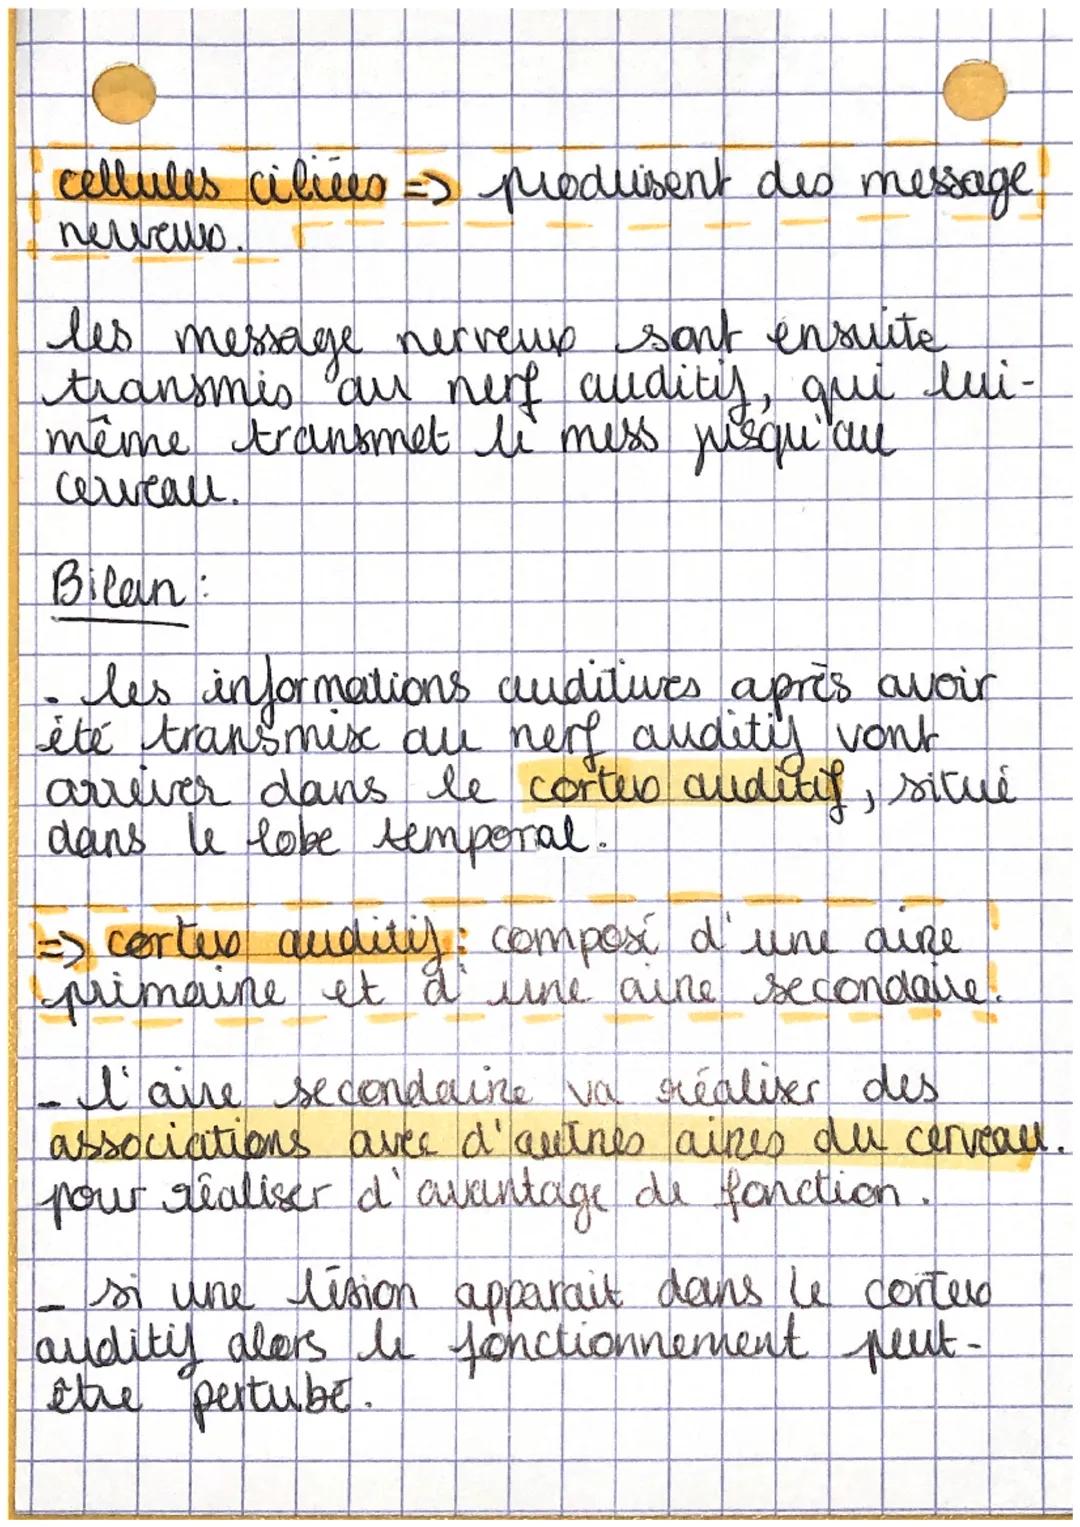 cellules ciliées => produisent des message
nerveux.
les message nerveux sont ensuite
transmis au nerf auditif, qui lui-
même transmet le mess jusqu'au
cerveau.
Bilan :
- les informations auditives après avoir
été transmise au nerf auditif vont
arriver dans le cortex auditif, situé
dans le lobe temporal.
=> cortex auditif : composé d'une aire
primaire et d'une aire secondaire.
- l'aire secondaire va réaliser des
associations avec d'autres aires du cerveau.
pour réaliser d'avantage de fonction.
- si une lésion apparait dans le cortex
auditif alors le fonctionnement peut-
être pertubé.